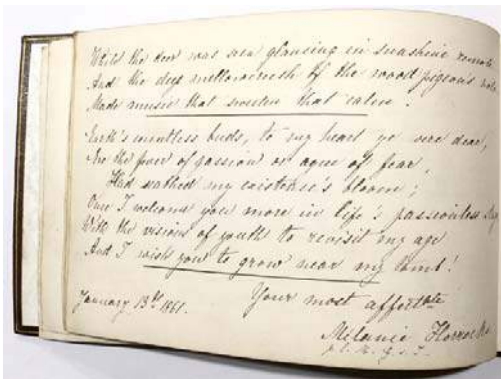 While the deer was seen glancing in sunshine remote
And the deep mellow crush of the wood pigeon's note
Made music that sweeten that calm.
Earth's countless buds, to my heart ye were dear,
Ere the fever of passion or ague of fear,
Had scathed my existence's bloom;
Once I welcome you more in life's passionless
With the visions of youth to revisit my age
And I wish you to grow near my tomb!
January 13th 1861. Your most affectate
Melanie